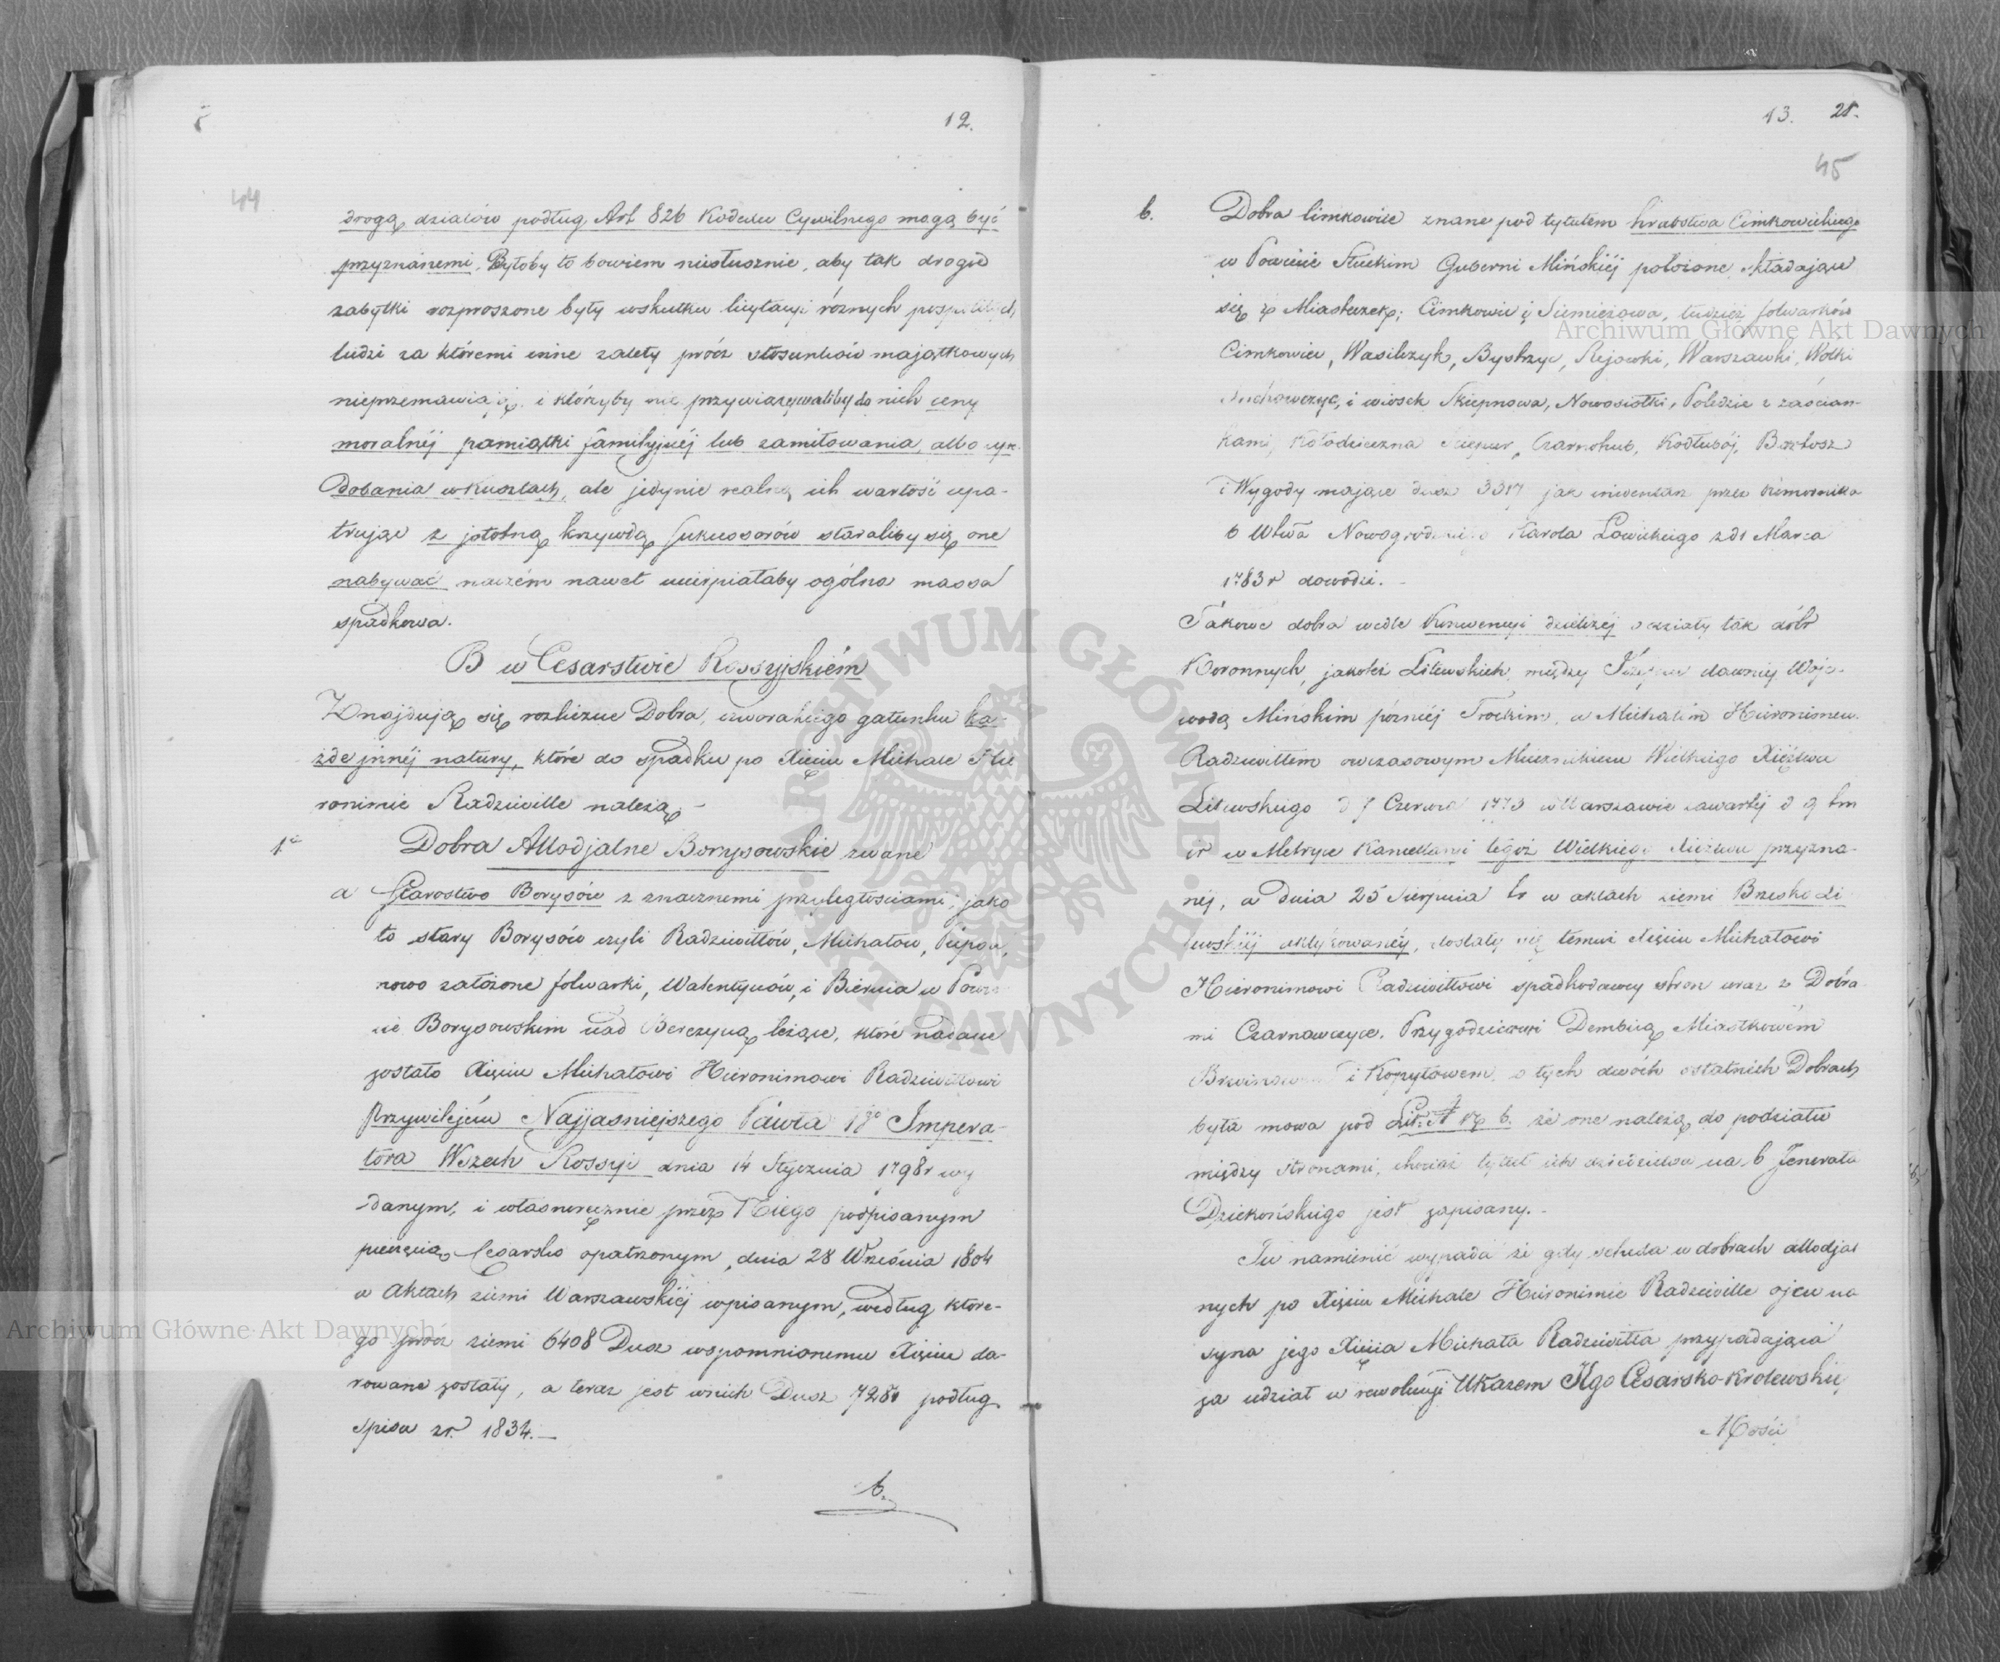 12.
44
drogą działów podług Art 826 Kodexu Cywilnego mogą być
przyznanemi. Byłoby to bowiem niesłusznie, aby tak drogie
zabytki rozproszone były wskutku licytacyi różnych pospolitych
ludzi za któremi inne zalety prócz stosunków majątkowych
nieprzemawiają i któryby nie przywiązywaliby do nich ceny
moralnéj pamiątki familyjnéj lub zamiłowania, albo upo-
dobania w kusztach, ale jedynie realną ich wartość upa-
trując z jstotną krzywdą sukcessorów staraliby się one
nabywać naczém nawet ucierpiałaby ogólna massa
spadkowa.
B w Cesarstwie Rossyjskiém
Znajdują się rozliczne Dobra, dworakiego gatunku ka-
żde jnnéj natury, które do spadku po Xięciu Michale Hie
ronimie Radziwille należą –
1º Dobra Allodjalne Borysowskie zwane
a Starostwo Borysów z znacznemi przyległościami; jako
to stary Borysów czyli Radziwiłłów, Michałow,
nowo założone folwarki, Walentynów, i Bierwia w Powie
cie Borysowskim nad Berezyną leżące, które nadane
zostało Xięciu Michałowi Hieronimowi Radziwiłłowi
Przywilejém Najjasniejszego Pawła Igo Impera-
tora Wszech Rossyi dnia 14 Stycznia 1798 r wy
danym, i własnoręcznie przez Niego podpisanym
pieczęcią Cesarsko opatrzonym, dnia 28 Września 1804
w Aktach ziemi Warszawskiéj wpisanym, według które-
go prócz ziemi 6408 Dusz wspomnionemu Xięciu da-
rowane zostały, a teraz jest wnich Dusz podług
spisu z r. 1834. –
b.
13. 28.
45
b. Dobra Cimkowice znane pod tytułem hrabstwa Cimkowickiego
w Powiecie Słuckim Guberni Mińskiéj położone, składające
się z Miasteczek; Cimkowic i Siemieżowa, tudzież folwarków
Cimkowice, Wasilczyk, Bystrzyc, Rejowki, Warszawki, Wolki
i wiosek Skiepnowa, Nowosiołki, z zaścian-
kami, Kołodziczna Czarnohub, Kodłubój, Bartosz
i Wygody mające dusz 3317 jak inwentarz przez Komornika
b Wtwa Nowogrodzkiego Karola Ławickiego z d 1 Marca
1783 r dowodzi. –
Takowe dobra wedle Konwencyi dzielczéj o działy tak dóbr
Koronnych, jakoteż Litewskich, między Józefem dawniej Woje-
wodą Mińskim późniéj Trockim, a Michałém Hieronimem
Radziwiłłem owczasowym Miecznikiem Wielkiego Xięztwa
Litewskiego d 7 Czerwca 1773 w Warszawie zawartéj d 9 tm
i r w Metryce Kancellaryi tegoż Wielkiego Xięztwa przyzna-
néj, a dnia 25 Sierpnia tr w aktach ziemi Brzesko Li
tewskiéj aktykowanéj, dostały się temuż Xięciu Michałowi
Hieronimowi Radziwiłłowi spadkodawcy stron wraz z Dobra
mi Czarnawczyce, Przygodzicami Dembicą Miastkowém
i Kopytowem, o tych dwóch ostatnich Dobrach
była mowa pod Lit: A że one należą do podziału
między stronami, chociaż tytuł ich dziedzictwa na b Jenerała
Dziekońskiego jest zapisany. –
Tu namienić wypada że gdy scheda w dobrach allodjal
nych po Xięciu Michale Hieronimie Radziwille ojcu na
syna jego Xięcia Michała Radziwiłła przypadająca
za udział w rewolucyi Ukazem Jego Césarsko-Krolewskiéj
Mości
Archiwum Główne Akt Dawnych
Archiwum Główne Akt Dawnych
ARCHIWUM GŁÓWNE AKT DAWNYCH